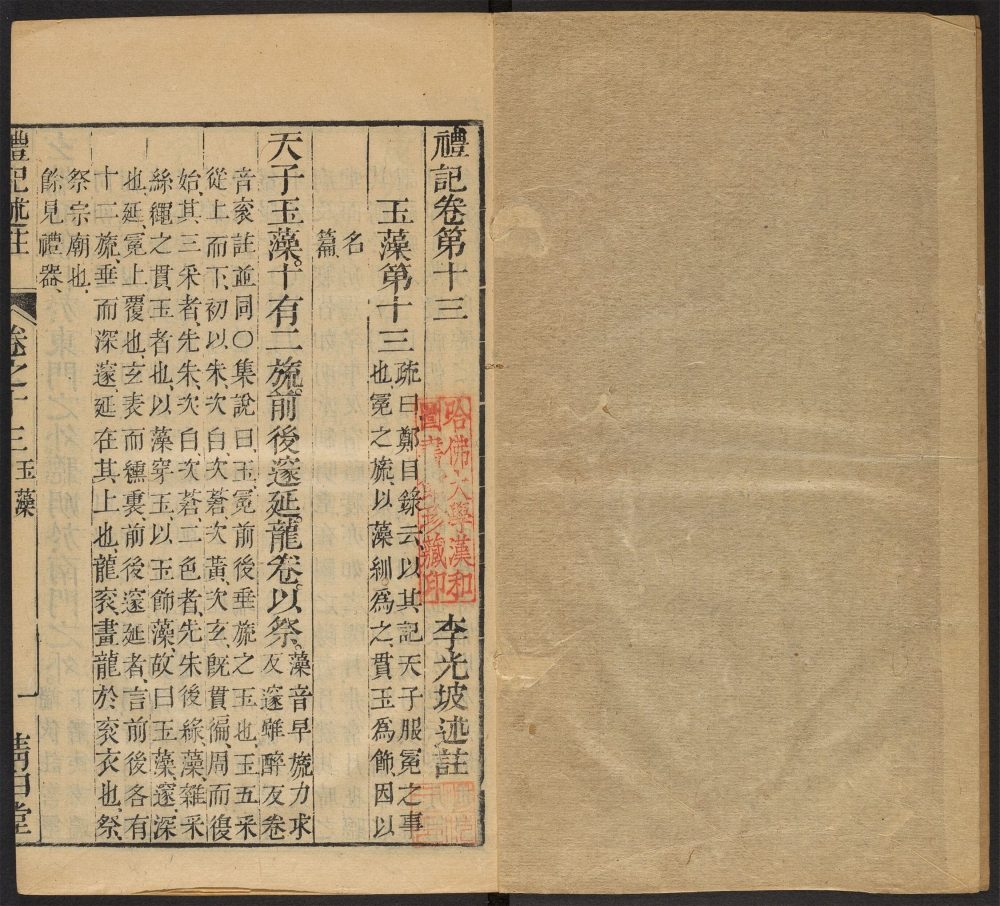 禮記卷第十三
李光坡述註
玉藻第十三
疏曰鄭目錄云以其記天子服冕之事
也冕之旒以藻紃爲之貫玉爲飾因以
名
篇
天子玉藻十有二旒前後邃延龍卷以祭
藻音早旒力求
反邃雖醉反卷
音衮註並同○集說曰玉冕前後垂旒之玉也玉五采
從上而下初以朱次白次蒼次黃次玄旣貫徧周而復
始其三采者先朱次白次蒼二色者先朱後綠藻雜采
絲繩之貫玉者也以藻穿玉以玉飾藻故曰玉藻邃深
也延冕上覆也玄表而纁裏前後邃延者言前後各有
十二旒垂而深邃延在其上也龍衮畫龍於衮衣也祭
祭宗廟也
餘見禮器
禮記述註
卷之十三
玉藻
一
清白堂
哈佛大學漢和
圖書館珍藏印